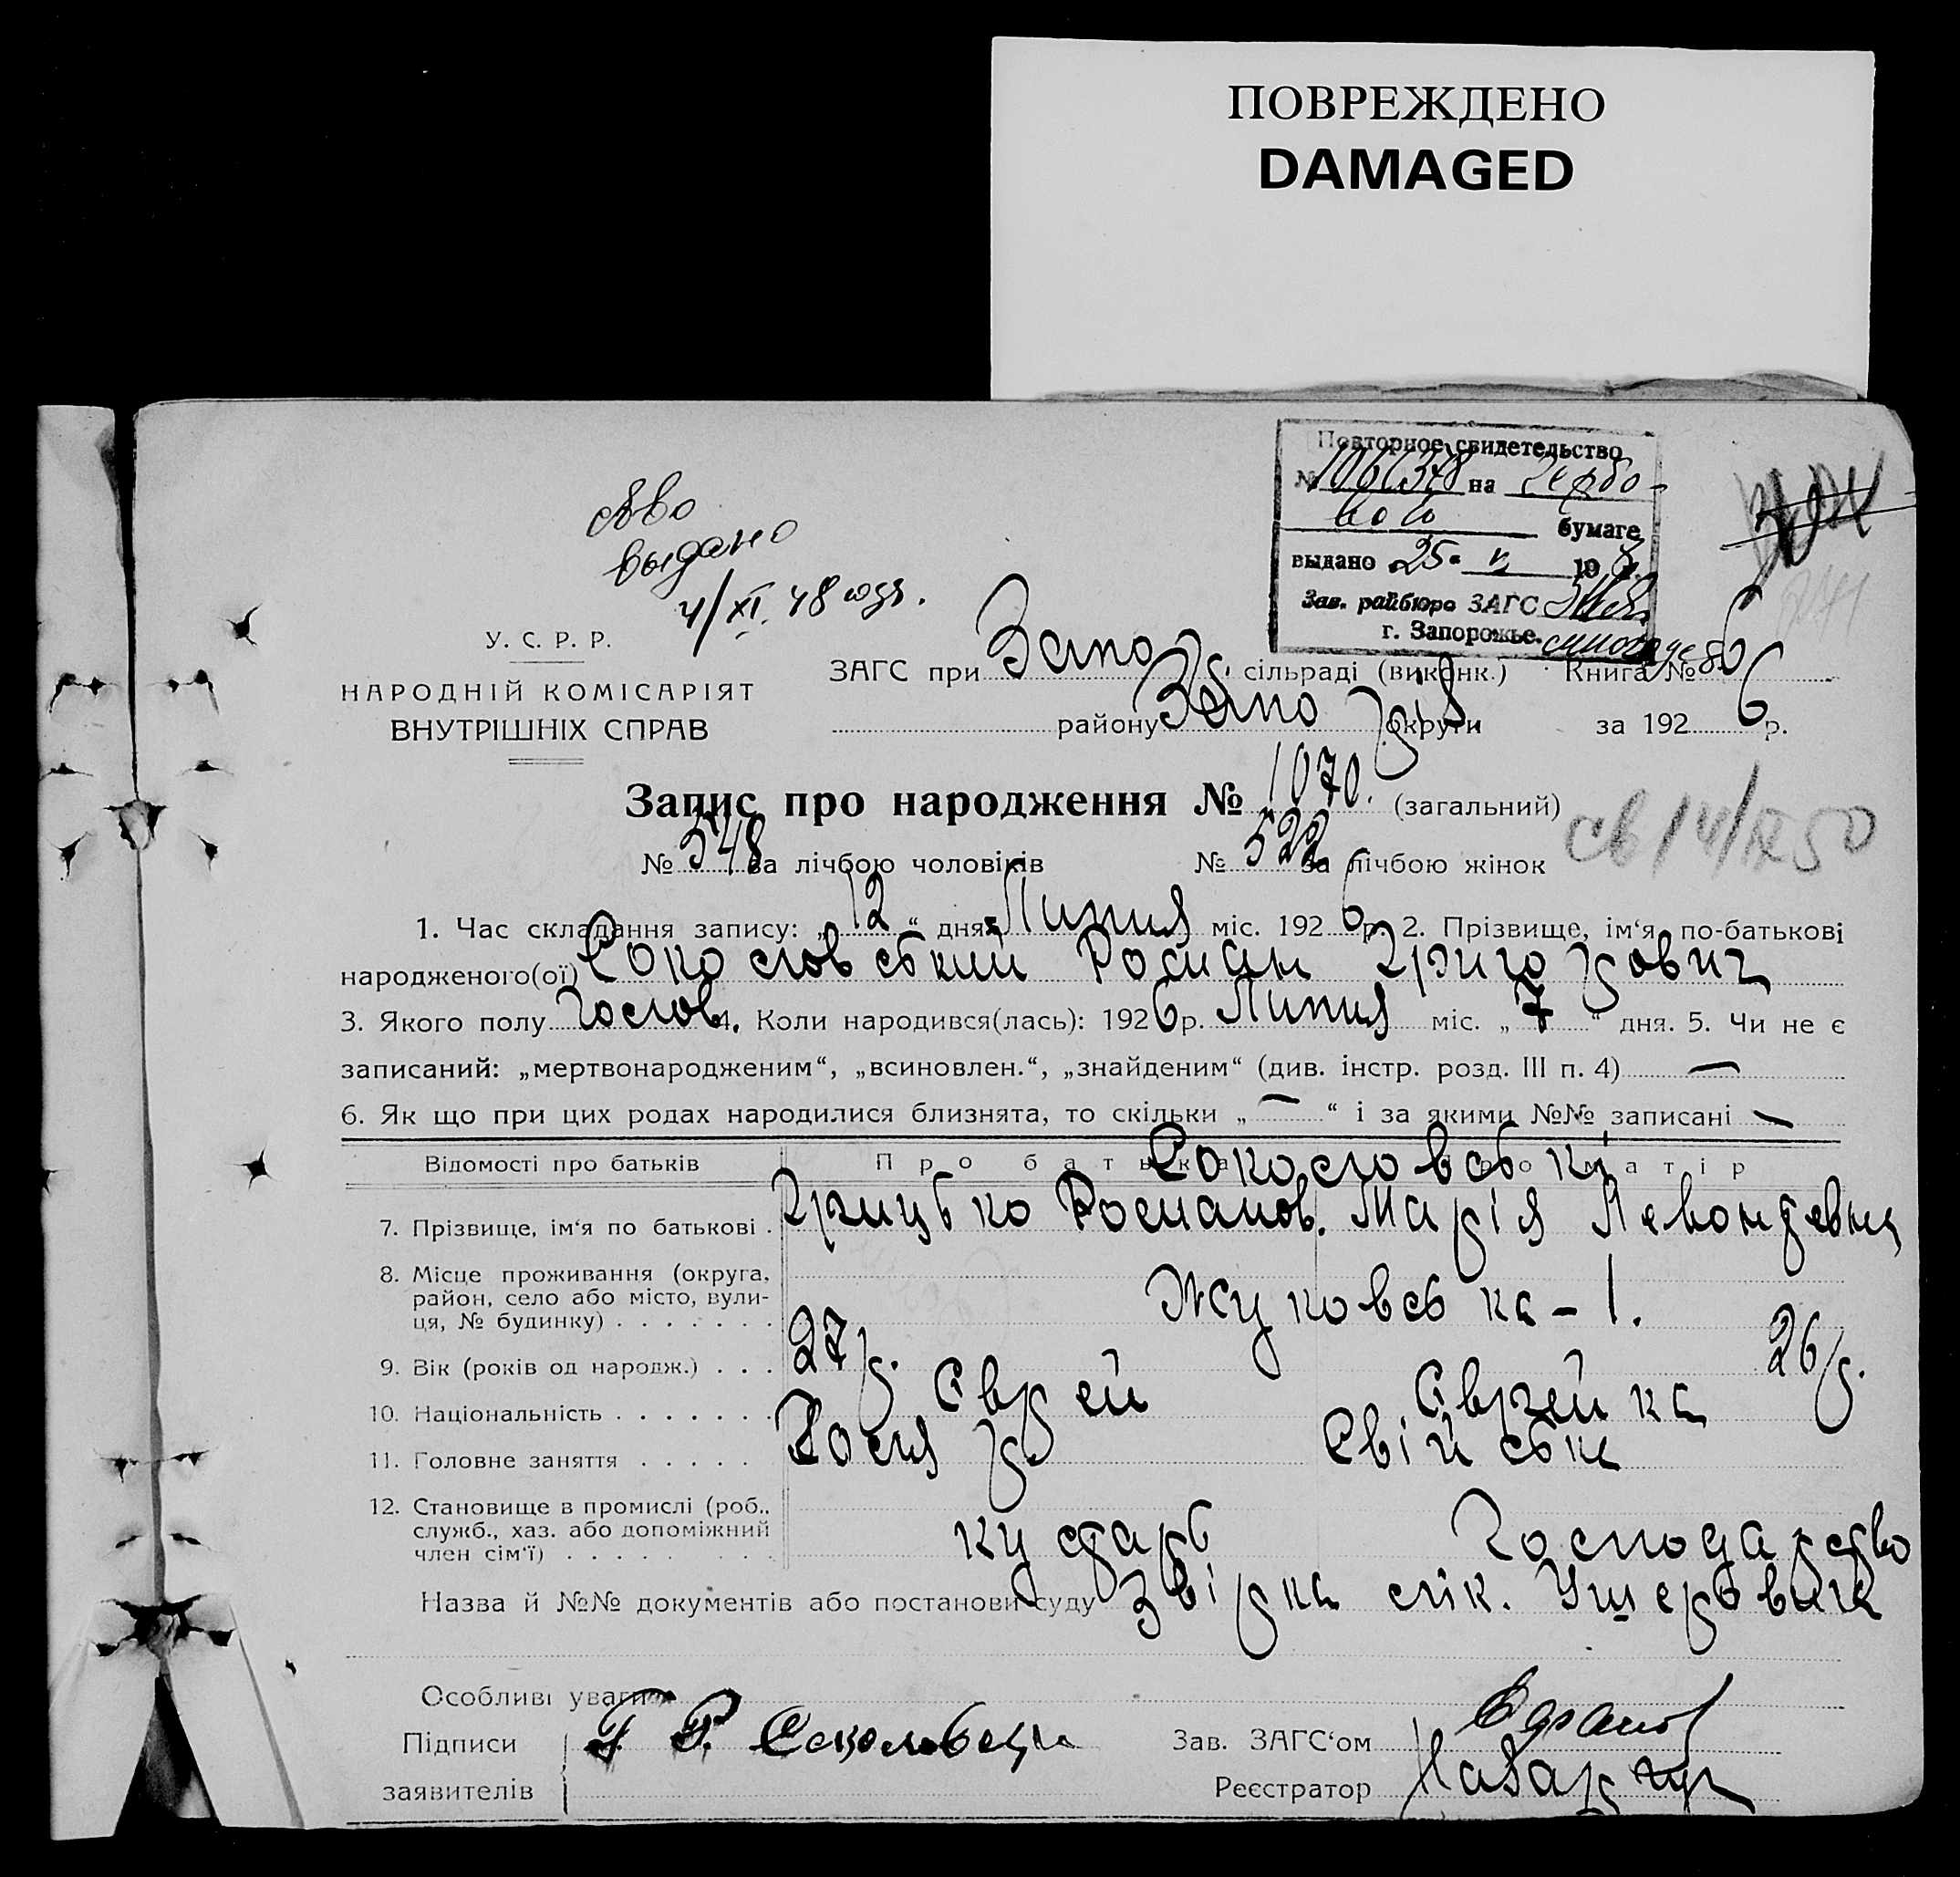 ПОВРЕЖДЕНО
DAMAGED
Повторное свидетельство
№ на гербо-
вой бумаге
выдано 25. 19
Зав. райбюро ЗАГС
г. Запорожье.
выдано
4/XI. 48
У. С. Р. Р.
НАРОДНІЙ КОМІСАРІЯТ
ВНУТРІШНІХ СПРАВ
ЗАГС при Запор. сільраді (виконк.) Книга № 6
району Запорiз округи за 1926 р.
Запис про народження № 1070. (загальний)
№ 548 за лічбою чоловіків № 522 за лічбою жінок
св 14/IX 50
1. Час складання запису: „12“ дня Липня міс. 1926 р. 2. Прізвище, ім‘я, по-батькові
народженого(ої) Сокословський Роман Григорович
3. Якого полу Чолов. 4. Коли народився(лась): 1926 р. Липня міс. „7“ дня. 5. Чи не є
записаний: „мертвонародженим“, „всиновлен.“, „знайденим“ (див. інстр. розд. III п. 4) —
6. Як що при цих родах народилися близнята, то скільки „—“ і за якими №№ записані —
Відомості про батьків Про батька Про матір
Сокословські
7. Прізвище, ім‘я по батькові . Грицько Романов. Марія Левондевна
8. Місце проживання (округа,
район, село або місто, вули-
ця, № будинку) . . . . . . . Жуковська – 1.
9. Вік (років од народж.) . . . 27 р. 26 р.
10. Національність . . . . . . . Єврей Єврейка
11. Головне заняття . . . . . Маляр Свійське
12. Становище в промислі (роб.,
служб., хаз. або допоміжний
член сім‘ї) . . . . . . . . . кустарь Господарство
Назва й №№ документів або постанови суду звірка лік.
Особливі уваги
Підписи Г. Р. Зав. ЗАГС‘ом
заявителів Реєстратор